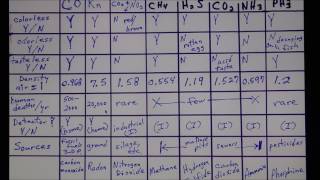 CO Rn NO₂ CH4 H₂S CO₂ NH₃ PH3
Colorless Y/N Y Y N red/brown Y Y Y Y Y
odorless Y/N Y Y N Y N rotten egg Y N N
tasteless Y/N Y Y N Y N N
Density air = 1 0.968 7.5 1.58 0.554 1.19 1.527 0.597 1.2
human deaths/yr 500-2000 20,000 rare few rare
Detector? Y/N Y (home) Y (home) industrial (I) (I) (I) (I) (I) (I)
Sources ground silage, etc manure pits sewers pesticides
Carbon monoxide Radon Nitrogen Dioxide Methane Hydrogen Sulfide Carbon dioxide Ammonia Phosphine